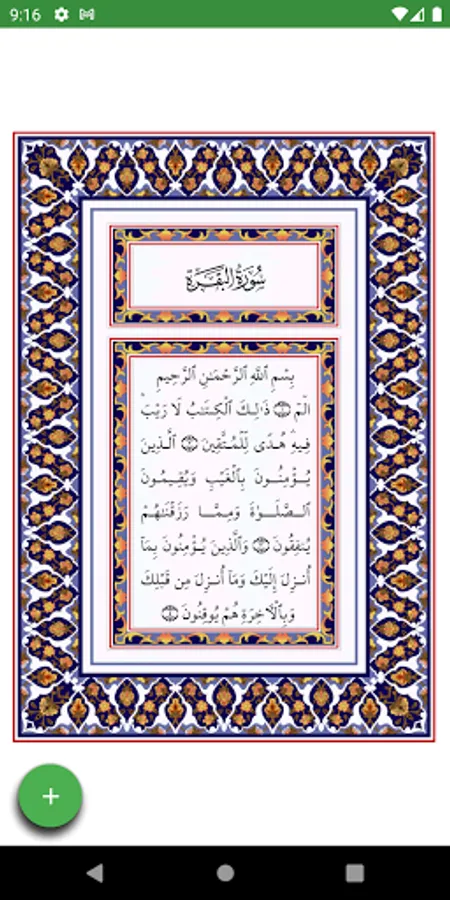 9:16
سُورَةُ البَقَرَةِ
بِسْمِ ٱللَّهِ ٱلرَّحْمَٰنِ ٱلرَّحِيمِ
الٓمٓ ۝١ ذَٰلِكَ ٱلْكِتَٰبُ لَا رَيْبَ ۛ
فِيهِ ۛ هُدًى لِّلْمُتَّقِينَ ۝٢ ٱلَّذِينَ
يُؤْمِنُونَ بِٱلْغَيْبِ وَيُقِيمُونَ
ٱلصَّلَوٰةَ وَمِمَّا رَزَقْنَٰهُمْ
يُنفِقُونَ ۝٣ وَٱلَّذِينَ يُؤْمِنُونَ بِمَآ
أُنزِلَ إِلَيْكَ وَمَآ أُنزِلَ مِن قَبْلِكَ
وَبِٱلْءَاخِرَةِ هُمْ يُوقِنُونَ ۝٤